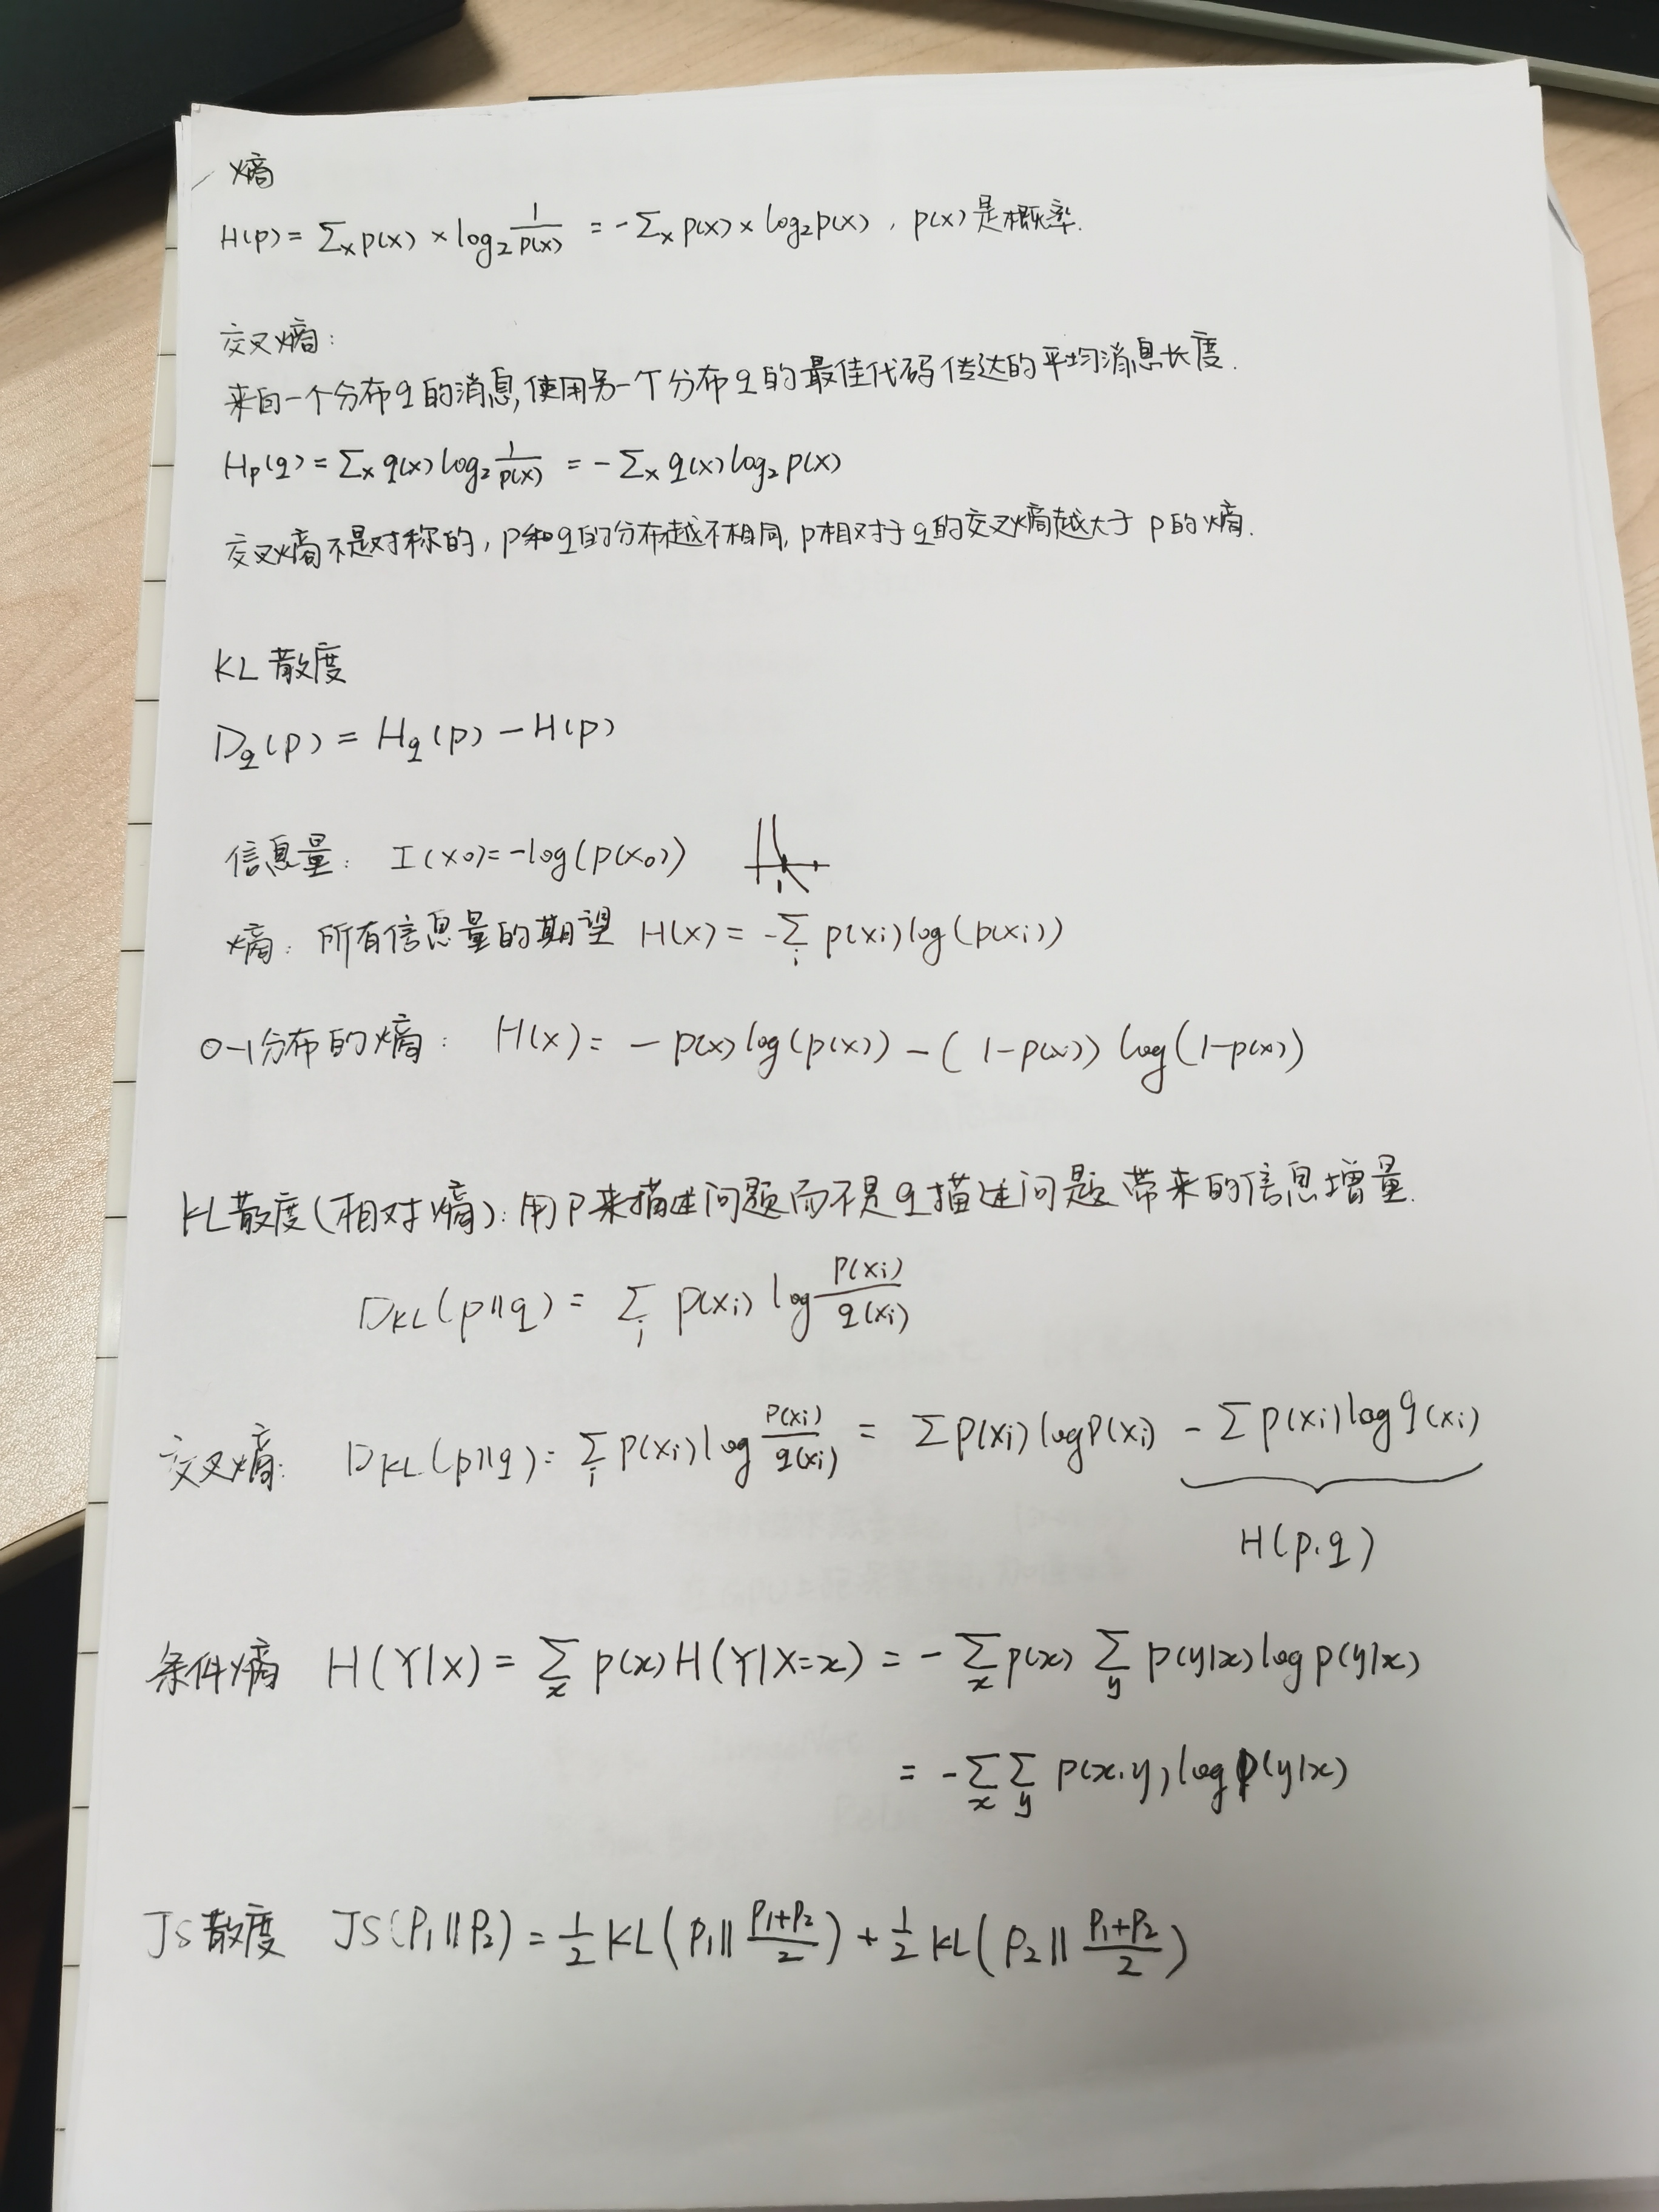 熵
H(p) = ∑ₓ p(x) × log₂ 1/p(x) = -∑ₓ p(x) × log₂p(x), p(x)是概率.
交叉熵:
来自一个分布q的消息,使用另一个分布q的最佳代码传达的平均消息长度.
Hp(q) = ∑ₓ q(x) log₂ 1/p(x) = -∑ₓ q(x) log₂ p(x)
交叉熵不是对称的, p和q的分布越不相同, p相对于q的交叉熵越大于 p的熵.
KL散度
Dq(p) = Hq(p) - H(p)
信息量: I(x₀) = -log(p(x₀)) 1
熵: 所有信息量的期望 H(x) = -∑i p(xi) log(p(xi))
0-1分布的熵: H(x) = -p(x) log(p(x)) - (1-p(x)) log(1-p(x))
KL散度(相对熵): 用P来描述问题而不是q描述问题带来的信息增量.
DKL(p||q) = ∑i p(xi) log p(xi)/q(xi)
交叉熵: DKL(p||q) = ∑i p(xi) log p(xi)/q(xi) = ∑p(xi) logp(xi) - ∑p(xi) log q(xi)
H(p,q)
条件熵 H(Y|X) = ∑x p(x) H(Y|X=x) = -∑x p(x) ∑y p(y|x) log p(y|x)
= -∑x∑y p(x,y) log p(y|x)
JS散度 JS(P₁||P₂) = 1/2 KL(P₁||(P₁+P₂)/2) + 1/2 KL(P₂||(P₁+P₂)/2)